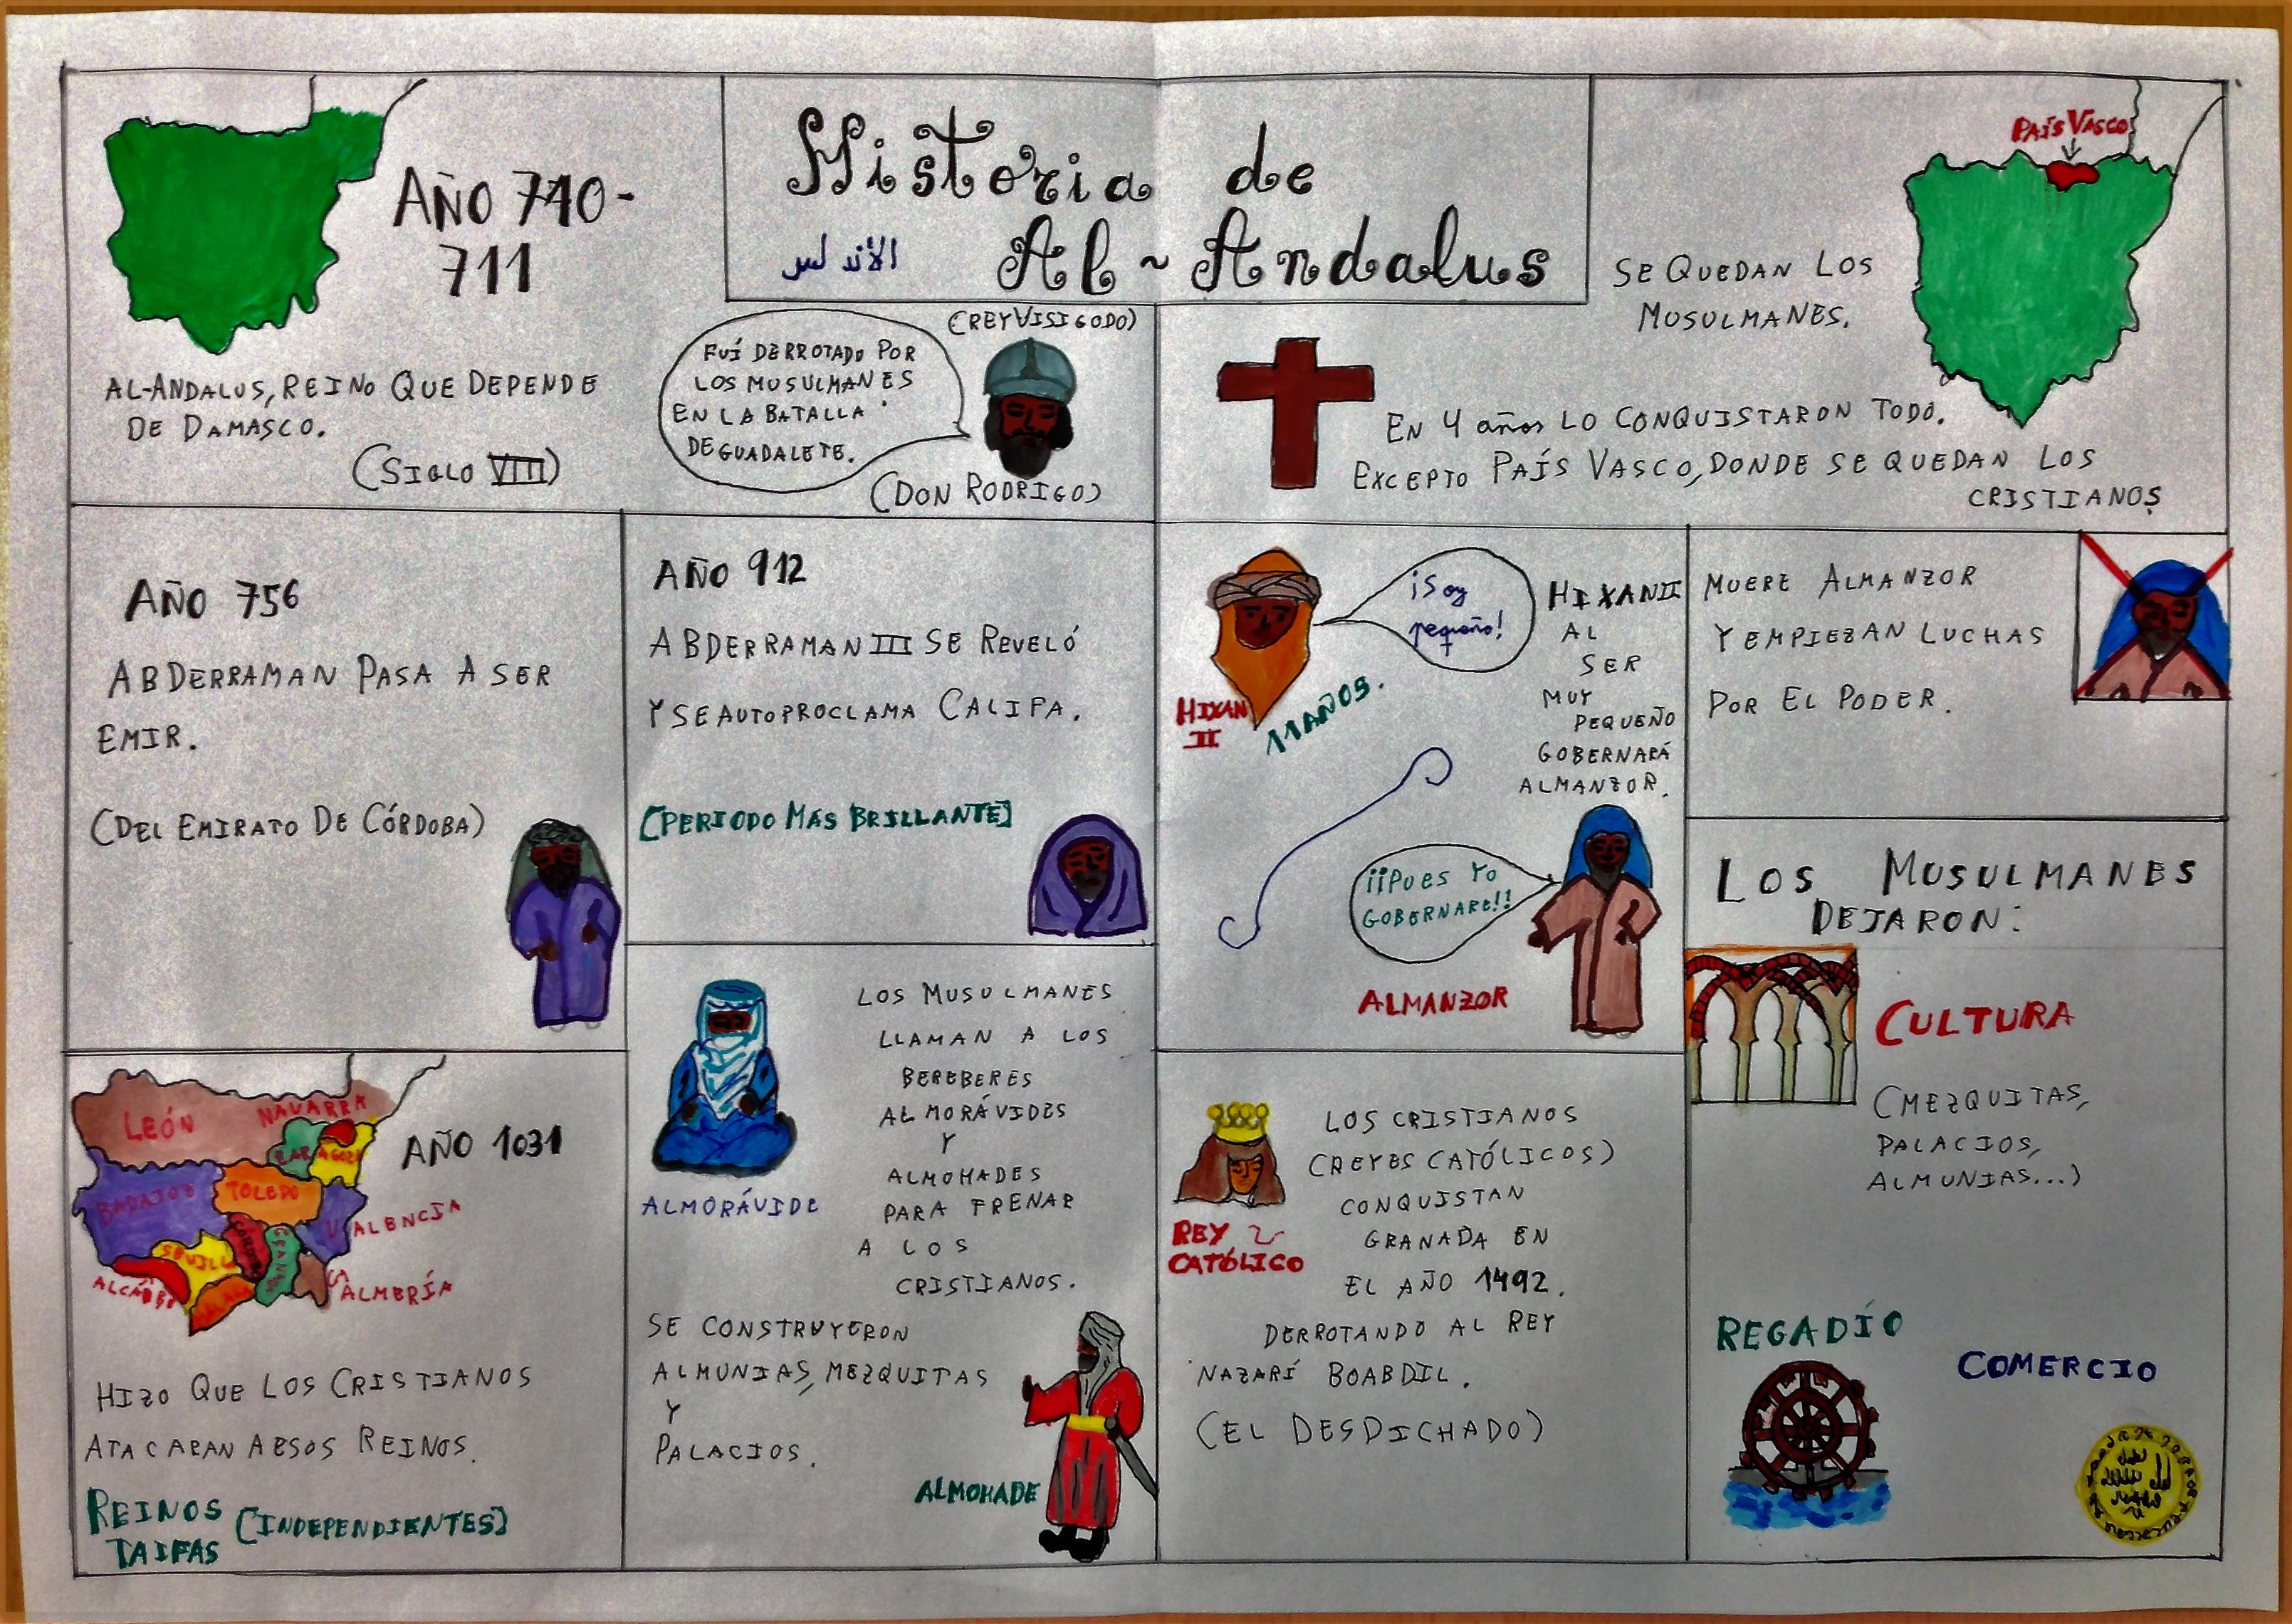 Historia de
الأندلس Al~Andalus
AÑO 710-
711
AL-ANDALUS, REINO QUE DEPENDE
DE DAMASCO.
(SIGLO VIII)
(REY VISIGODO)
FUÍ DERROTADO POR
LOS MUSULMANES
EN LA BATALLA
DE GUADALETE.
(DON RODRIGO)
PAÍS VASCO
SE QUEDAN LOS
MUSULMANES.
EN 4 años LO CONQUISTARON TODO.
EXCEPTO PAÍS VASCO, DONDE SE QUEDAN LOS
CRISTIANOS
AÑO 756
ABDERRAMAN PASA A SER
EMIR.
(DEL EMIRATO DE CÓRDOBA)
AÑO 912
ABDERRAMAN III SE REVELÓ
Y SE AUTOPROCLAMA CALIFA.
[PERIODO MÁS BRILLANTE]
¡Soy
pequeño!
HIXAN
II
11 AÑOS.
HIXAN II
AL
SER
MUY
PEQUEÑO
GOBERNARÁ
ALMANZOR.
¡¡PUES YO
GOBERNARE!!
ALMANZOR
MUERE ALMANZOR
Y EMPIEZAN LUCHAS
POR EL PODER.
LEÓN
NAVARRA
ZARAGOZA
BADAJOZ
TOLEDO
VALENCIA
SEVILLA
CÓRDOBA
GRANADA
ALMERÍA
AÑO 1031
HIZO QUE LOS CRISTIANOS
ATACARAN A ESOS REINOS.
REINOS [INDEPENDIENTES]
TAIFAS
LOS MUSULMANES
LLAMAN A LOS
BEREBERES
ALMORÁVIDES
Y
ALMOHADES
PARA FRENAR
A LOS
CRISTIANOS.
ALMORÁVIDE
SE CONSTRUYERON
ALMUNIAS, MEZQUITAS
Y
PALACIOS.
ALMOHADE
REY
CATÓLICO
LOS CRISTIANOS
(REYES CATÓLICOS)
CONQUISTAN
GRANADA EN
EL AÑO 1492.
DERROTANDO AL REY
NAZARÍ BOABDIL.
(EL DESDICHADO)
LOS MUSULMANES
DEJARON:
CULTURA
(MEZQUITAS,
PALACIOS,
ALMUNIAS...)
REGADÍO
COMERCIO